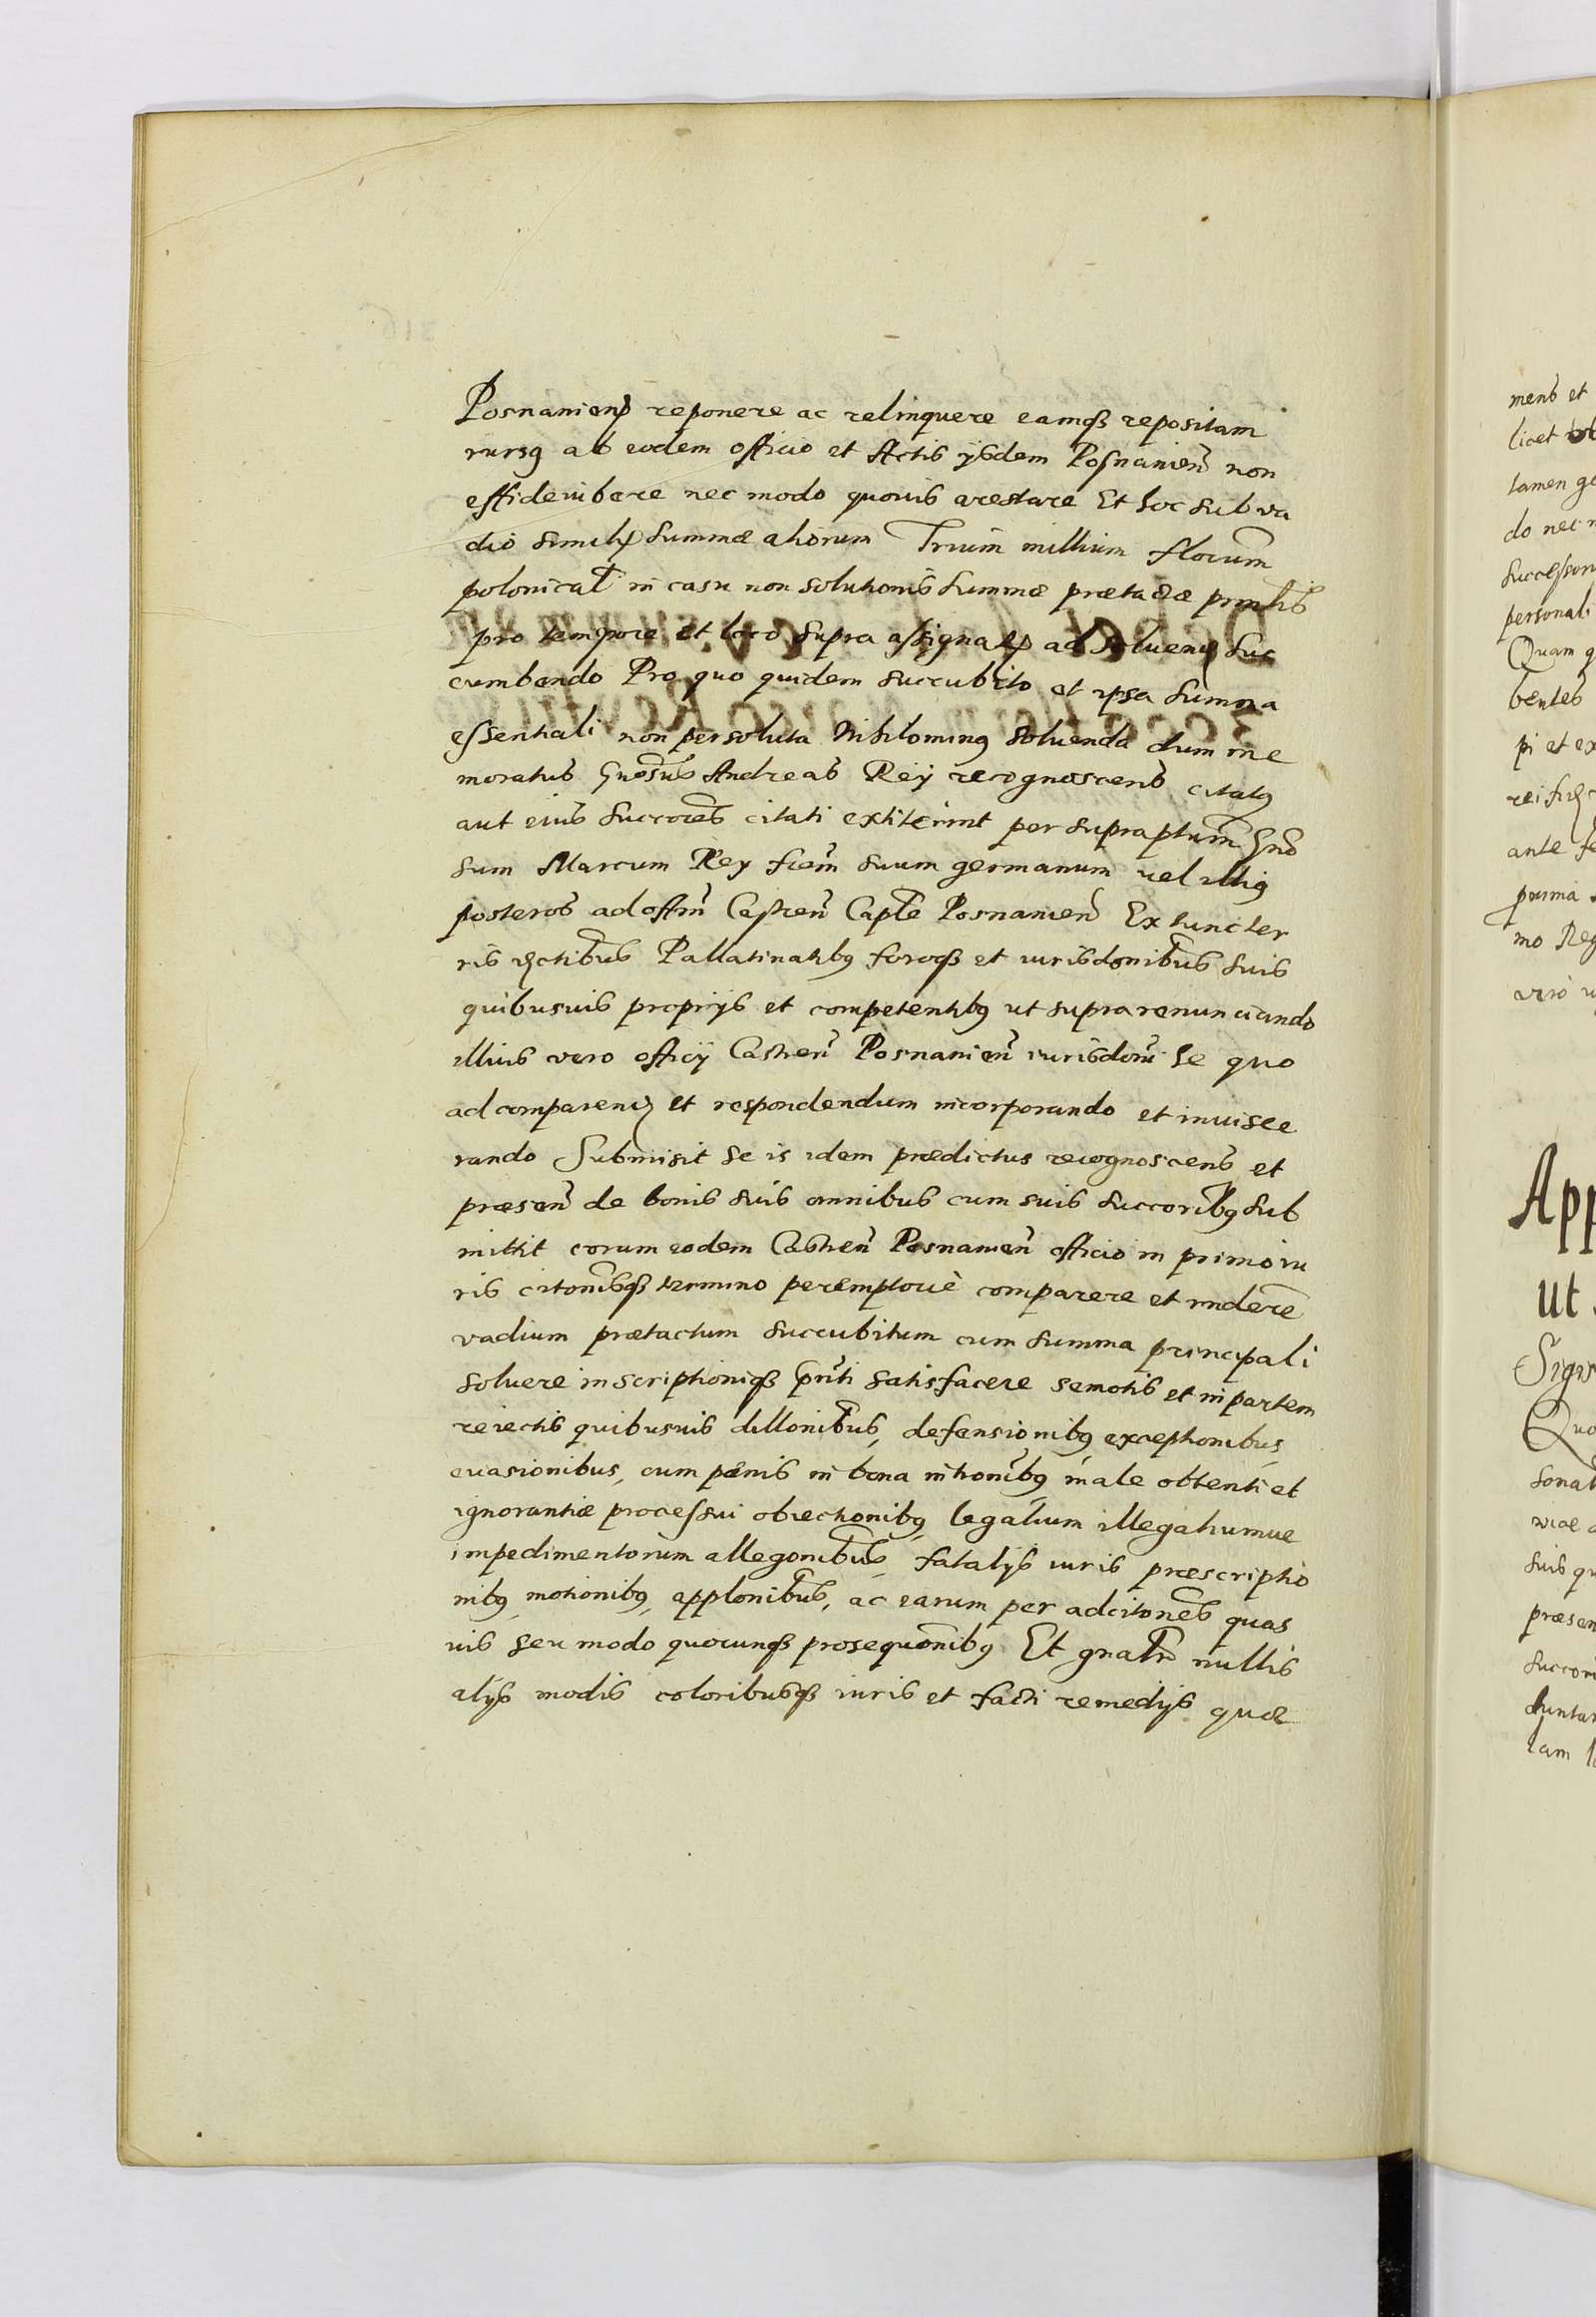 Posnanien reponere ac relinquere eamqꝫ repositam
rursꝰ ab eodem officio et Actis ysdem Posnanien non
effideiubere nec modo quovis arestare Et hoc sub va
dio similis summæ aliorum Trium millium florum
polonical in casu non solutionis summæ prætactæ prnlis
pro tempore et loco supra assignatis ad solvend suc
cumbendo Pro quo quidem succubito et ipsa summa
essentiali non persoluta Nihilominꝰ solvenda dum me
moratus Gnosus Andreas Rey recognoscens citatꝰ
aut eius succores citati extiterint per supraptum Gno
sum Marcum Rey frem suum germanum vel illiꝰ
posteros ad offm Castren Captle Posnanien Ex tunc ter
ris districtibus Pallatinatibꝰ foroqꝫ et iurisdonibus suis
quibusuis proprijs et competentibꝰ ut supra renunciando
illius vero officij Castren Posnanien iurisdoni se quo
ad comparend et respondendum incorporando et invisce
rando Submisit se is idem prædictus recognoscens et
præsen de bonis suis omnibus cum suis succoribꝰ sub
mittit coram eodem Castren Posnanien officio in primo iu
ris citonisqꝫ termino peremptoriè comparere et rndere
vadium prætactum succubitum cum summa principali
soluere inscriptioniqꝫ prnti satisfacere semotis et in partem
reiectis quibusuis dillonibus, defensionibꝰ exceptionibus,
euasionibus, cum pœnis in bona intronibꝰ, male obtenti et
ignorantiæ processui obiectionibꝰ, legalium illegaliumue
impedimentorum allegonibus, fatalijs iuris præscriptio
nibꝰ, motionibꝰ, applonibus, ac earum per adcitones quas
uis seu modo quocunqꝫ prosequonibꝰ Et gnalr nullis
alijs modis coloribusqꝫ iuris et facti remedijs quæ
mens et
licet
tamen ge
do nec
personali
Quam q
bentes
pi et ex
ante fe
prima
mo Reg
App
ut
Sigis
Quo
sonal
suis qu
præsen
succor
tam